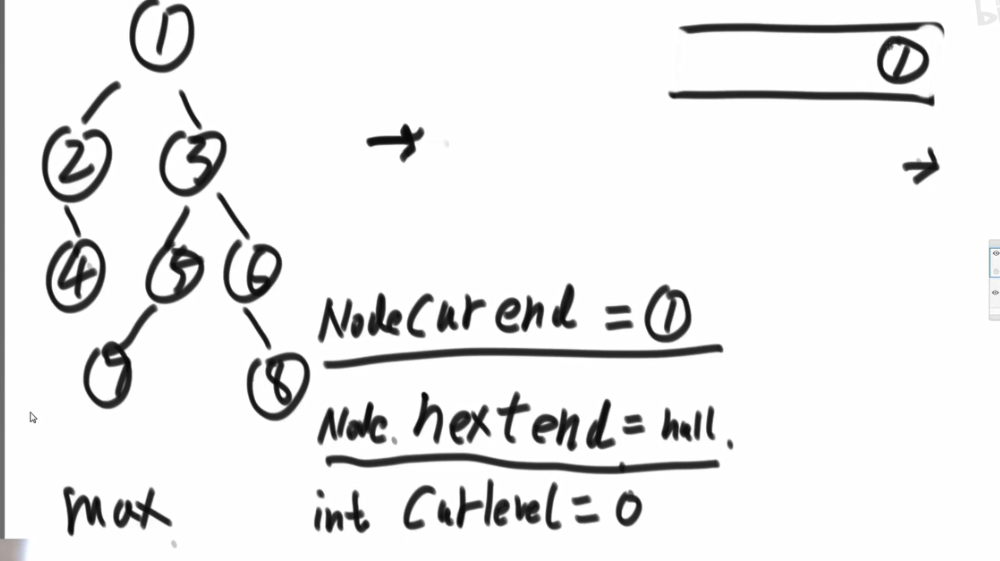 ①
①
② ③
④ ⑤ ⑥
Node Cur end = ①
⑦ ⑧
Node. nextend = null.
max
int Curlevel = 0